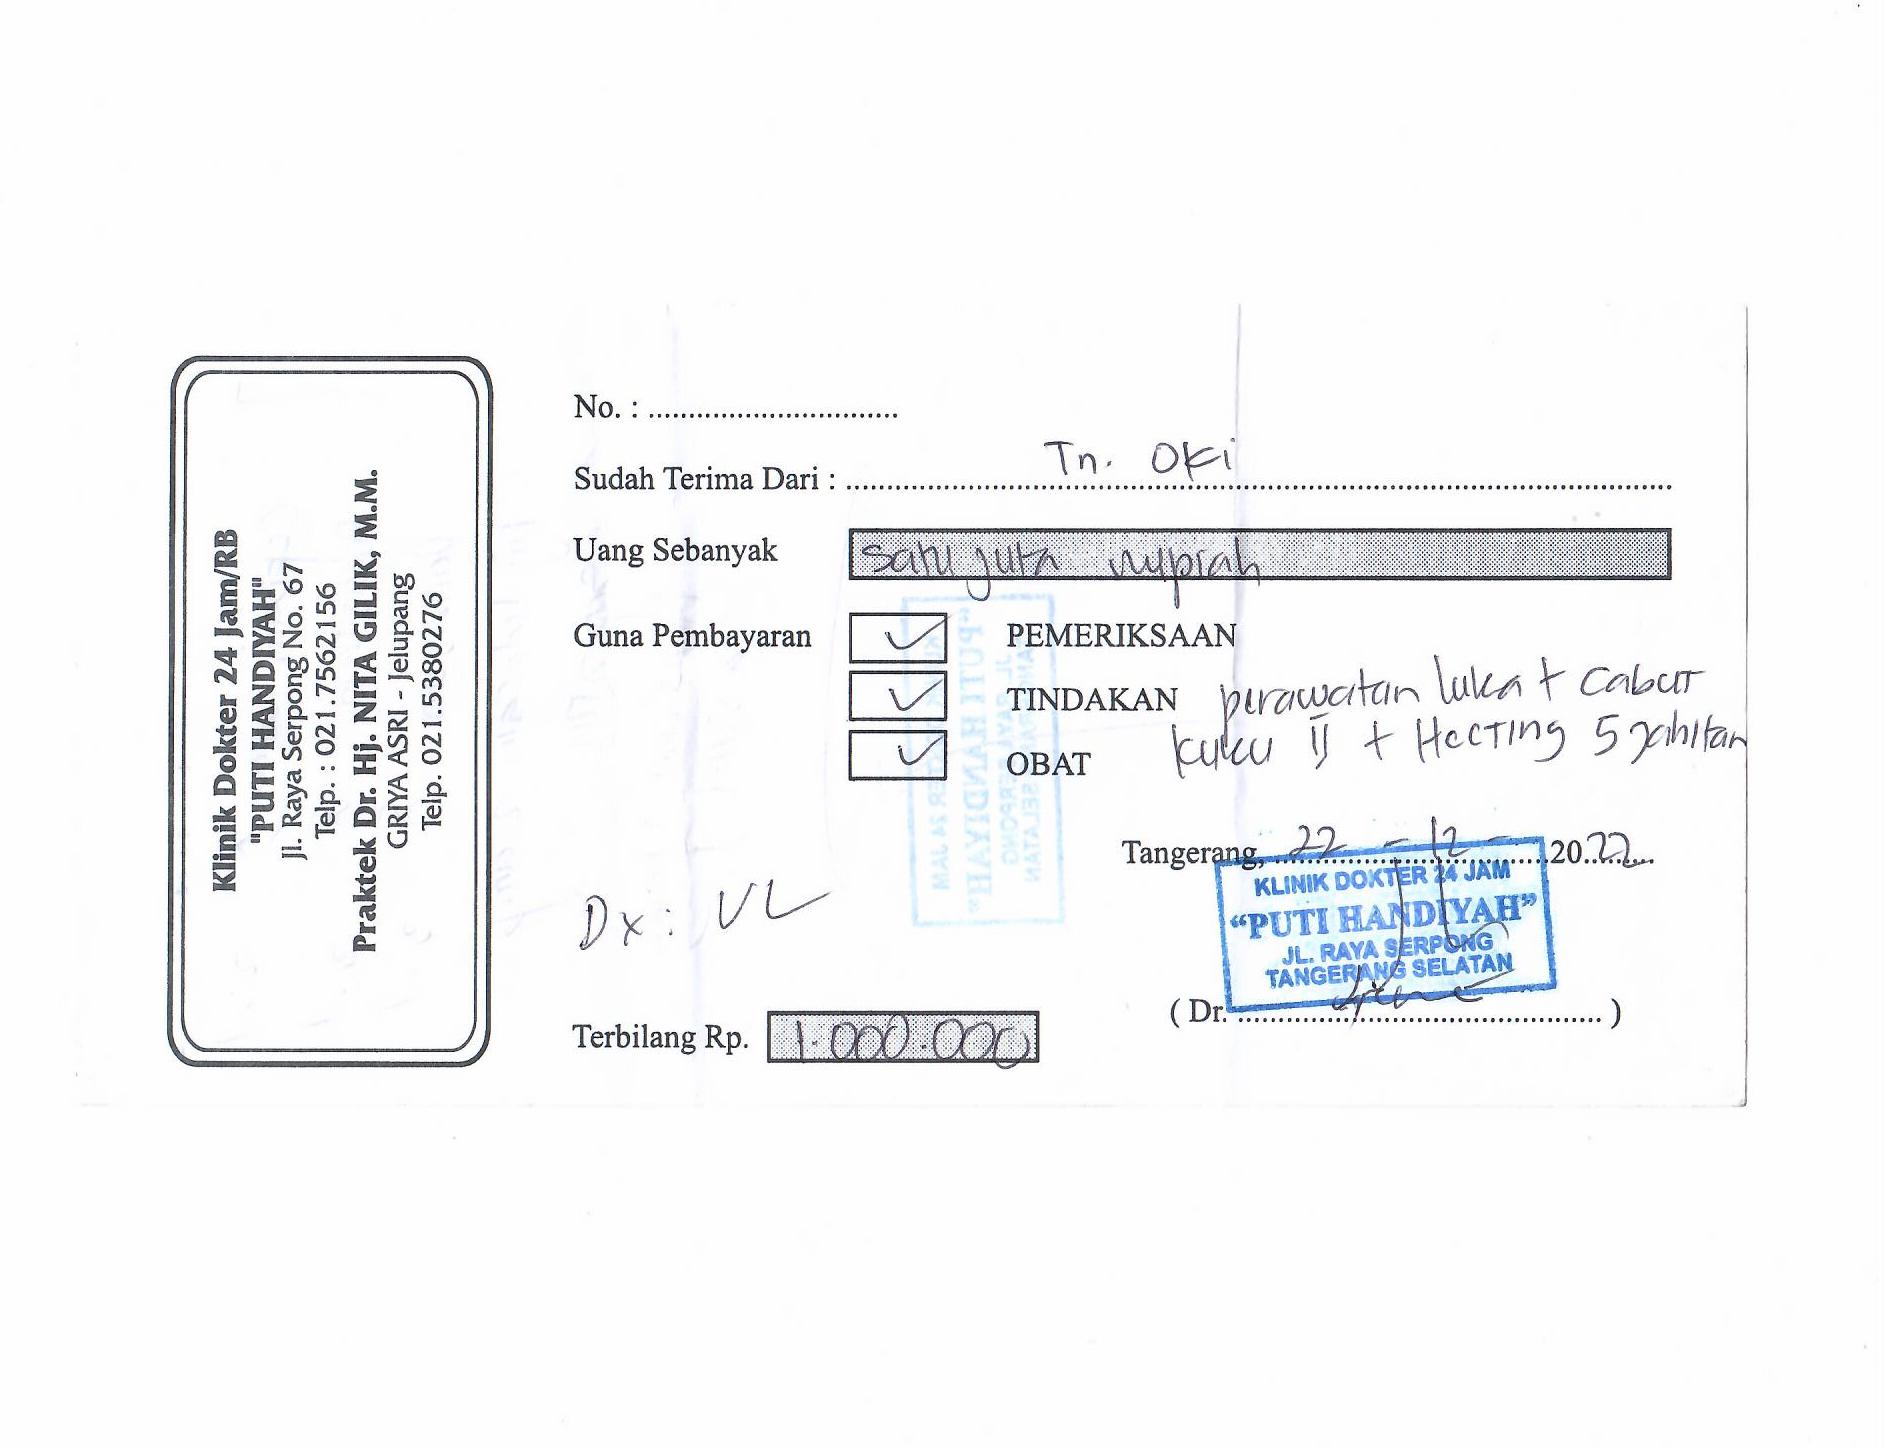 Klinik Dokter 24 Jam/RB
"PUTI HANDIYAH"
Jl. Raya Serpong No. 67
Telp. : 021.7562156
Praktek Dr. Hj. NITA GILIK, M.M.
GRIYA ASRI - Jelupang
Telp. 021.5380276
No. : ................................
Sudah Terima Dari : Tn. Oki
Uang Sebanyak satu juta rupiah
Guna Pembayaran ✓ PEMERIKSAAN
✓ TINDAKAN perawatan luka + cabut
kuku II + Hecting 5 jahitan
✓ OBAT
Tangerang, 22 - 12 - 2022
KLINIK DOKTER 24 JAM
"PUTI HANDIYAH"
JL. RAYA SERPONG
TANGERANG SELATAN
Dx : VL
(Dr. .................... )
Terbilang Rp. 1.000.000